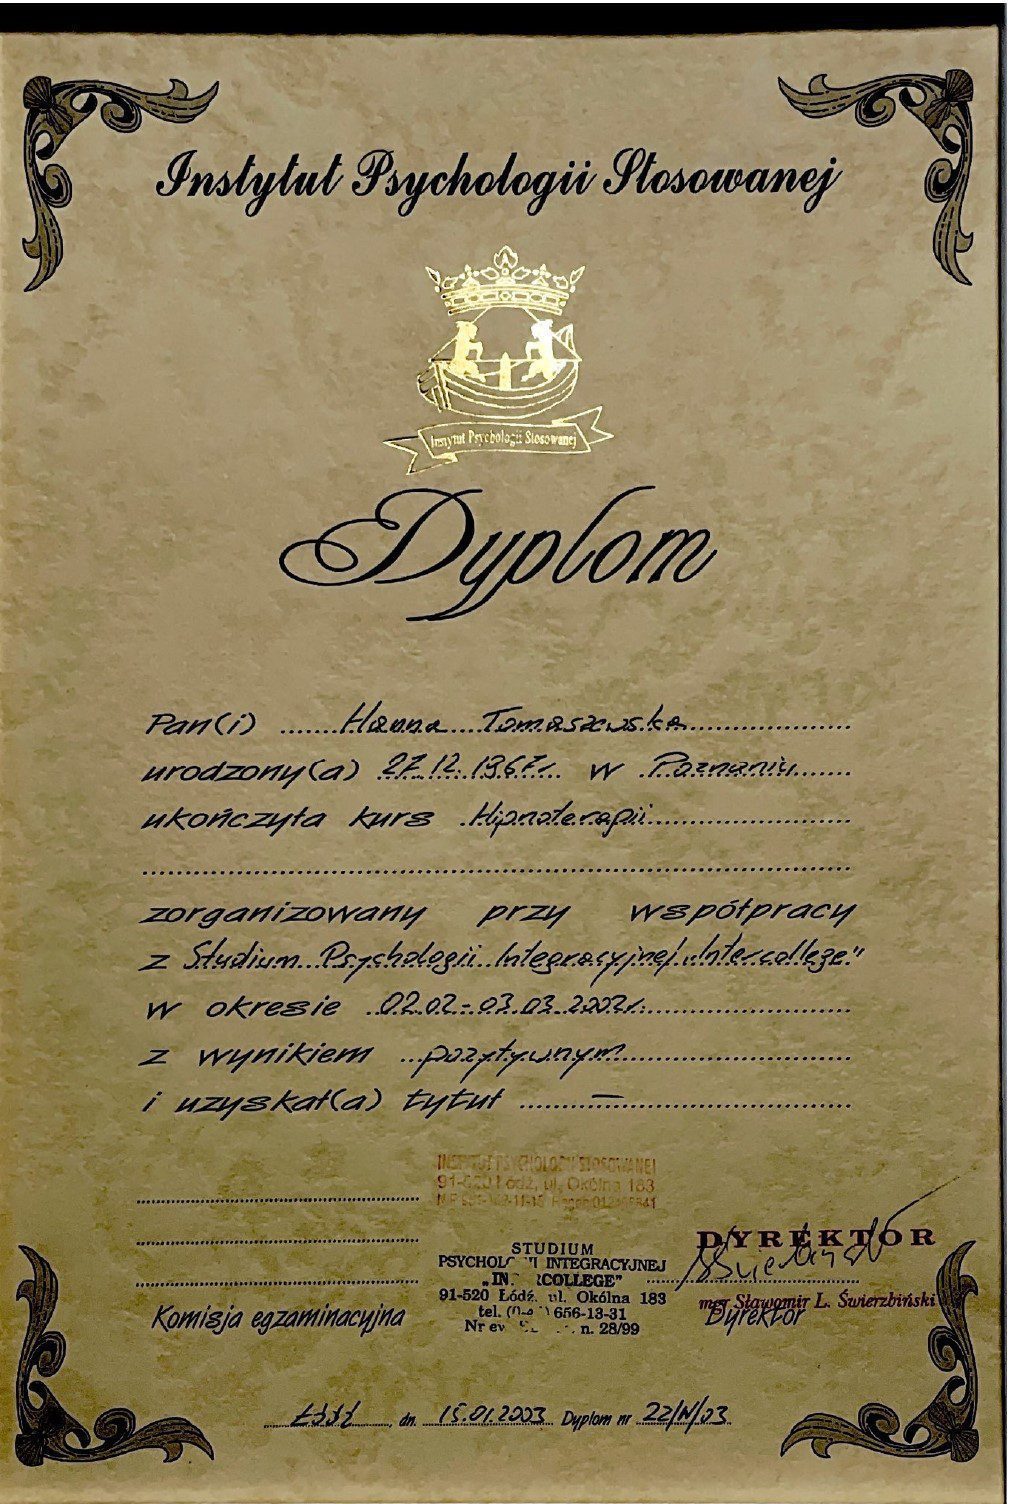 Instytut Psychologii Stosowanej
Instytut Psychologii Stosowanej
Dyplom
Pan(i) Hanna Tomaszewska
urodzony(a) 27.12.1967r. w Poznaniu
ukończyła kurs Hipnoterapii
zorganizowany przy współpracy
z Studium Psychologii Integracyjnej „Intercollege"
w okresie 02.02-03.03.2002r.
z wynikiem pozytywnym
i uzyskał(a) tytuł —
INSTYTUT PSYCHOLOGII STOSOWANEJ
91-520 Łódź, ul. Okólna 183
STUDIUM
PSYCHOLOGII INTEGRACYJNEJ
„INTERCOLLEGE"
91-520 Łódź, ul. Okólna 183
tel. 656-13-31
Nr n. 28/99
DYREKTOR
mgr Sławomir L. Świerzbiński
Dyrektor
Komisja egzaminacyjna
Łódź, dn. 15.01.2003 Dyplom nr 22/N/03